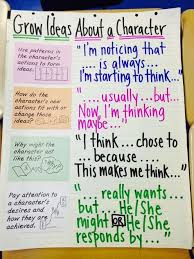 Grow Ideas About a Character
Use patterns in
the character's
actions to form
ideas.
"I'm noticing that
... is always...
I'm starting to think..."
How do the
character's new
actions fit with or
change those
ideas?
"... usually... but...
Now, I'm thinking
maybe..."
Why might the
character act
like this?
"I think... chose to
... because....
This makes me think..."
Pay attention to
a character's
desires and how
they are
achieved.
"... really wants...
but... He/She
might OR He/She
responds by..."